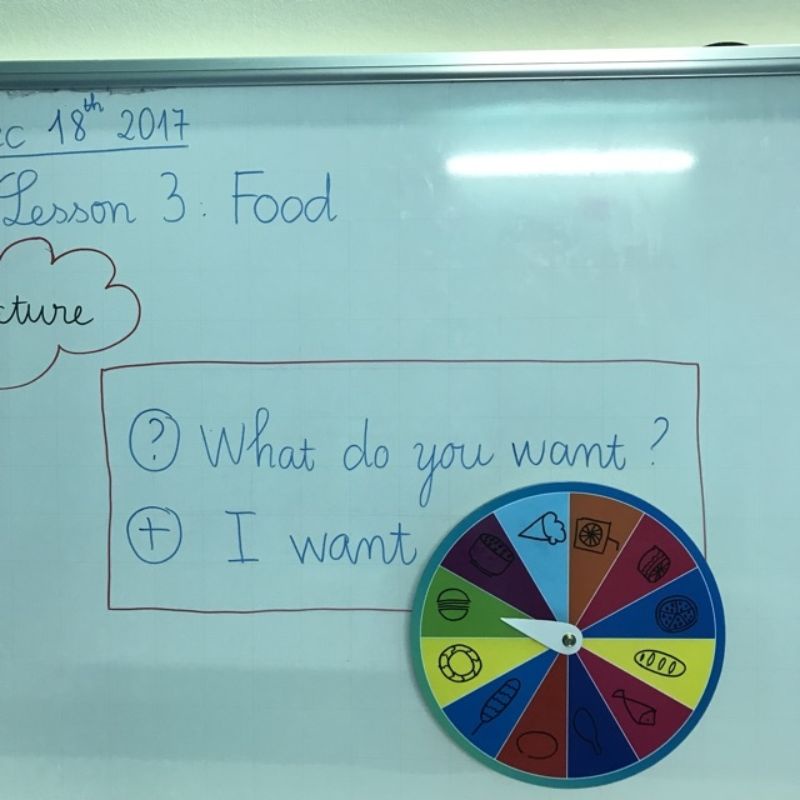 18th 2017
Lesson 3: Food
? What do you want?
+ I want